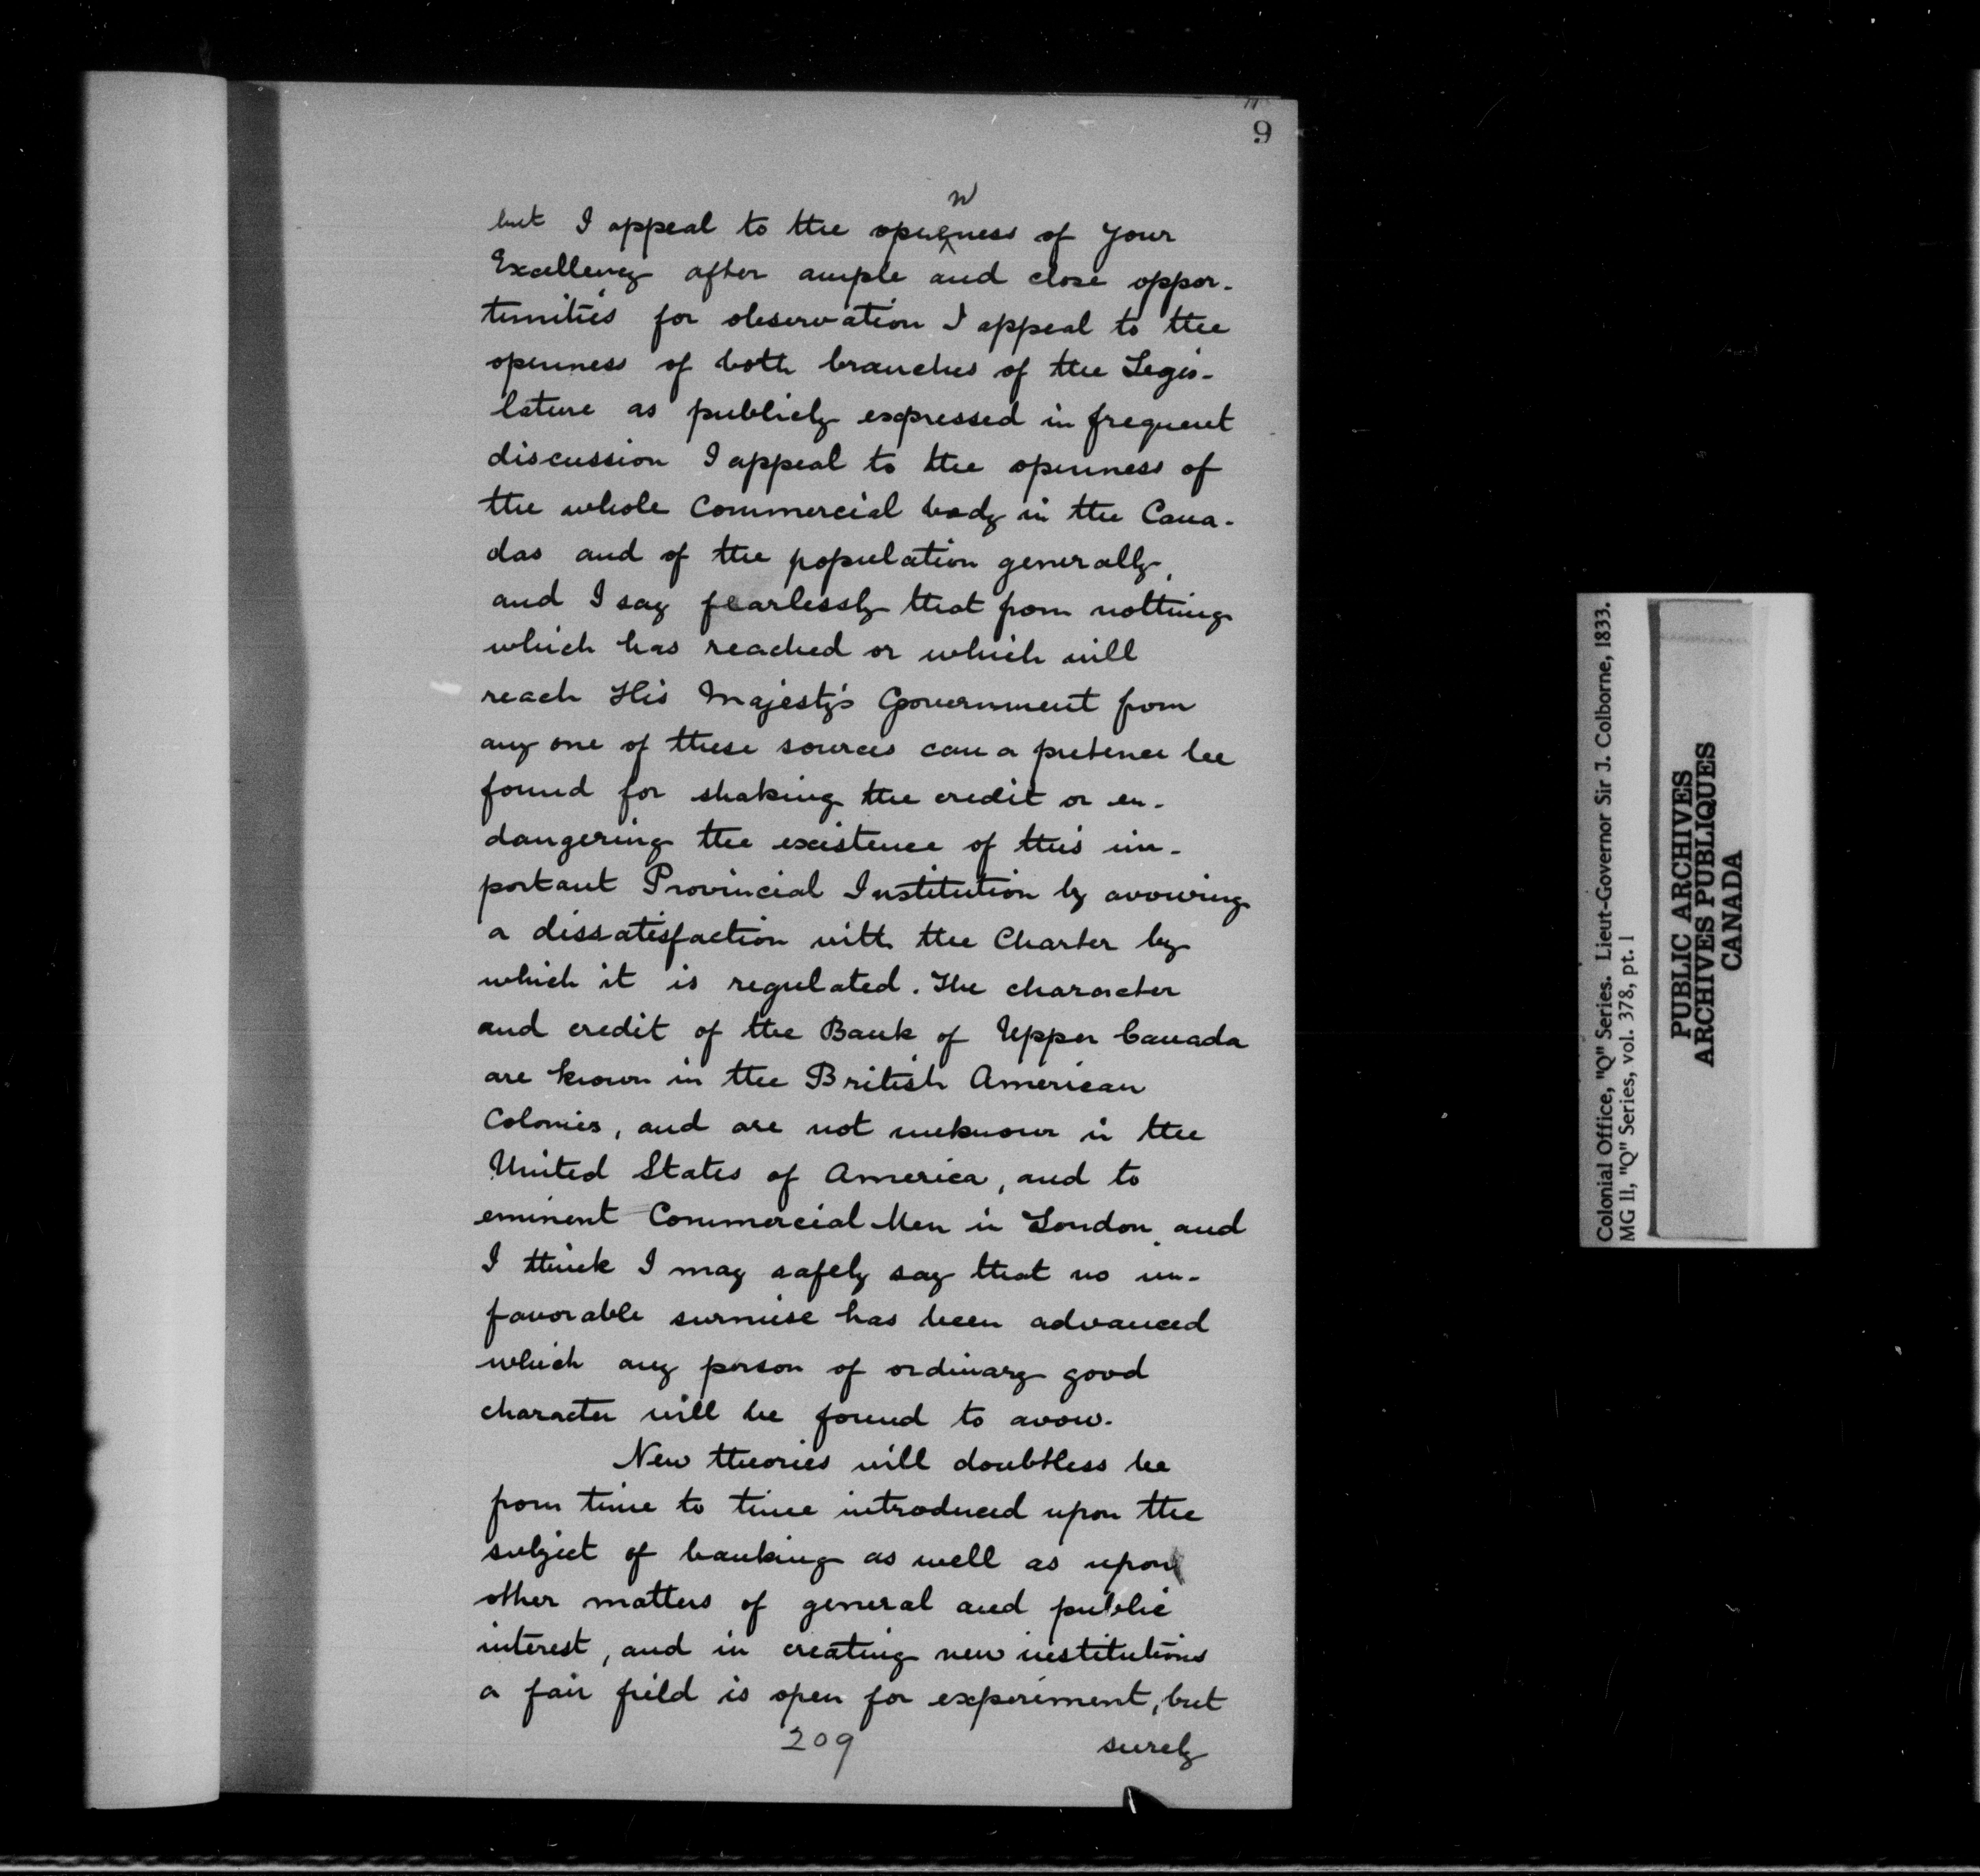 9
but I appeal to the openness of Your
Excellency after ample and close oppor-
tunities for observation I appeal to the
openness of both branches of the Legis-
lature as publicly expressed in frequent
discussion I appeal to the openness of
the whole Commercial body in the Cana-
das and of the population generally,
and I say fearlessly that from nothing
which has reached or which will
reach His Majesty's Government from
any one of these sources can a pretence be
found for shaking the credit or en-
dangering the existence of this im-
portant Provincial Institution by avowing
a dissatisfaction with the Charter by
which it is regulated. The character
and credit of the Bank of Upper Canada
are known in the British American
Colonies, and are not unknown in the
United States of America, and to
eminent Commercial Men in London, and
I think I may safely say that no un-
favorable surmise has been advanced
which any person of ordinary good
character will be found to avow.
New theories will doubtless be
from time to time introduced upon the
subject of banking as well as upon
other matters of general and public
interest, and in creating new institutions
a fair field is open for experiment, but
209
surely
Colonial Office, "Q" Series. Lieut-Governor Sir J. Colborne, 1833.
MG 11, "Q" Series, vol. 378, pt. 1
PUBLIC ARCHIVES
ARCHIVES PUBLIQUES
CANADA